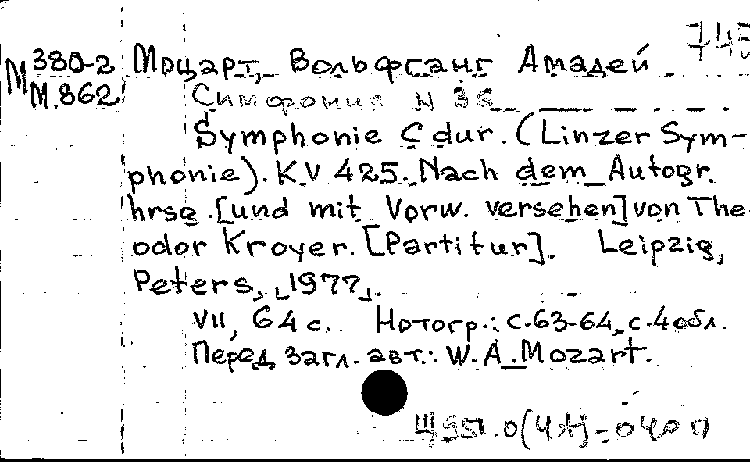 743
М 380-2 Моцарт, Вольфганг Амадей
М.862 Симфония N 36
Symphonie C dur. (Linzer Sym-
phonie). K.V 425. Nach dem Autogr.
hrsg. [und mit Vorw. versehen] von The-
odor Kroyer. [Partitur]. Leipzig,
Peters, [1977].
VII, 64 с. Нотогр.: с.63-64, с.4 обл.
Перед загл. авт.: W. A. Mozart.